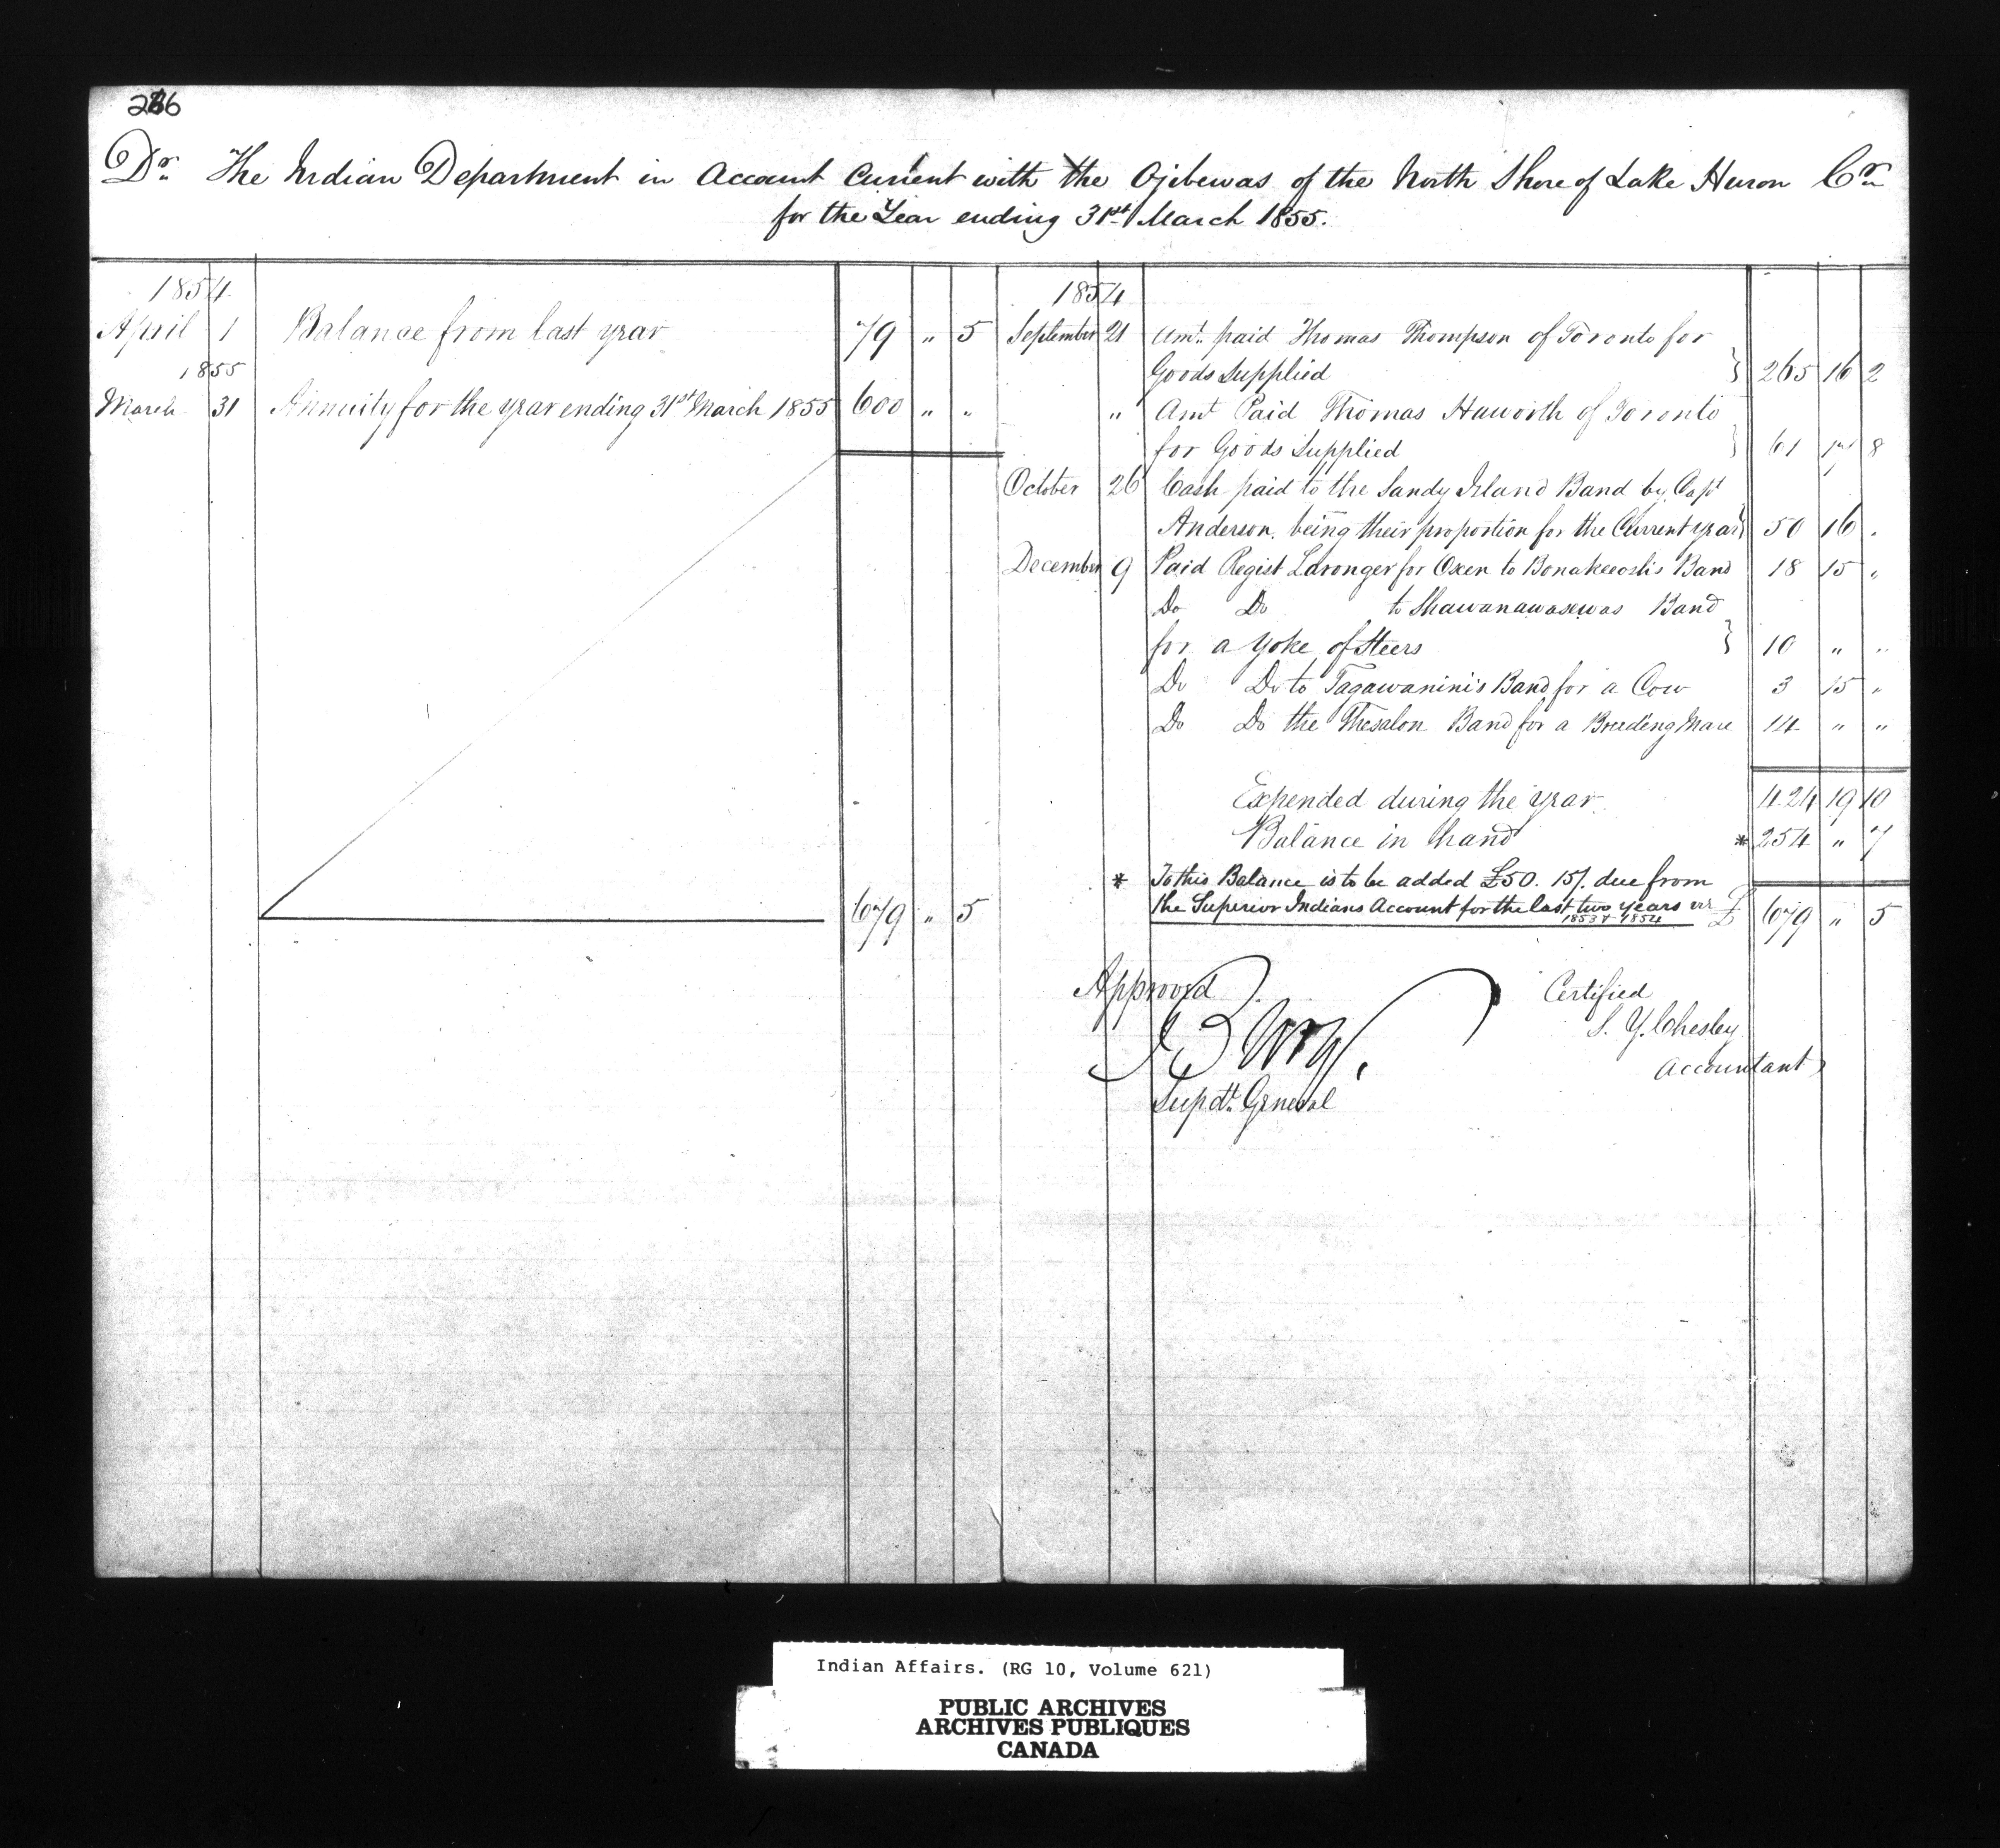 286
Dr. The Indian Department in Account Current with the Ojibewas of the North Shore of Lake Huron Cr.
for the Year ending 31st March 1855.
1854
April 1 Balance from last year 79 " 5
1855
March 31 Annuity for the year ending 31st March 1855 600 " "
679 " 5
1854
September 21 Amt. paid Thomas Thompson of Toronto for
Goods Supplied 265 16 2
" Amt Paid Thomas Haworth of Toronto
for Goods Supplied 61 17 8
October 26 Cash paid to the Sandy Island Band by Capt
Anderson, being their proportion for the Current year 50 16 "
December 9 Paid Regist Laronger for Oxen to Band 18 15 "
Do Do to Shawanawasewas Band
for a Yoke of Steers 10 " "
Do Do to Tagawanini's Band for a Cow 3 15 "
Do Do the Thesalon Band for a Breeding Mare 14 " "
Expended during the year 424 19 10
Balance in hand * 254 " 7
* To this Balance is to be added £50. 15/. due from
the Superior Indians Account for the last two years viz
1853 & 1854
£ 679 " 5
Approved
Supdt. General
Certified
S. Y. Chesley
Accountant
Indian Affairs. (RG 10, Volume 621)
PUBLIC ARCHIVES
ARCHIVES PUBLIQUES
CANADA